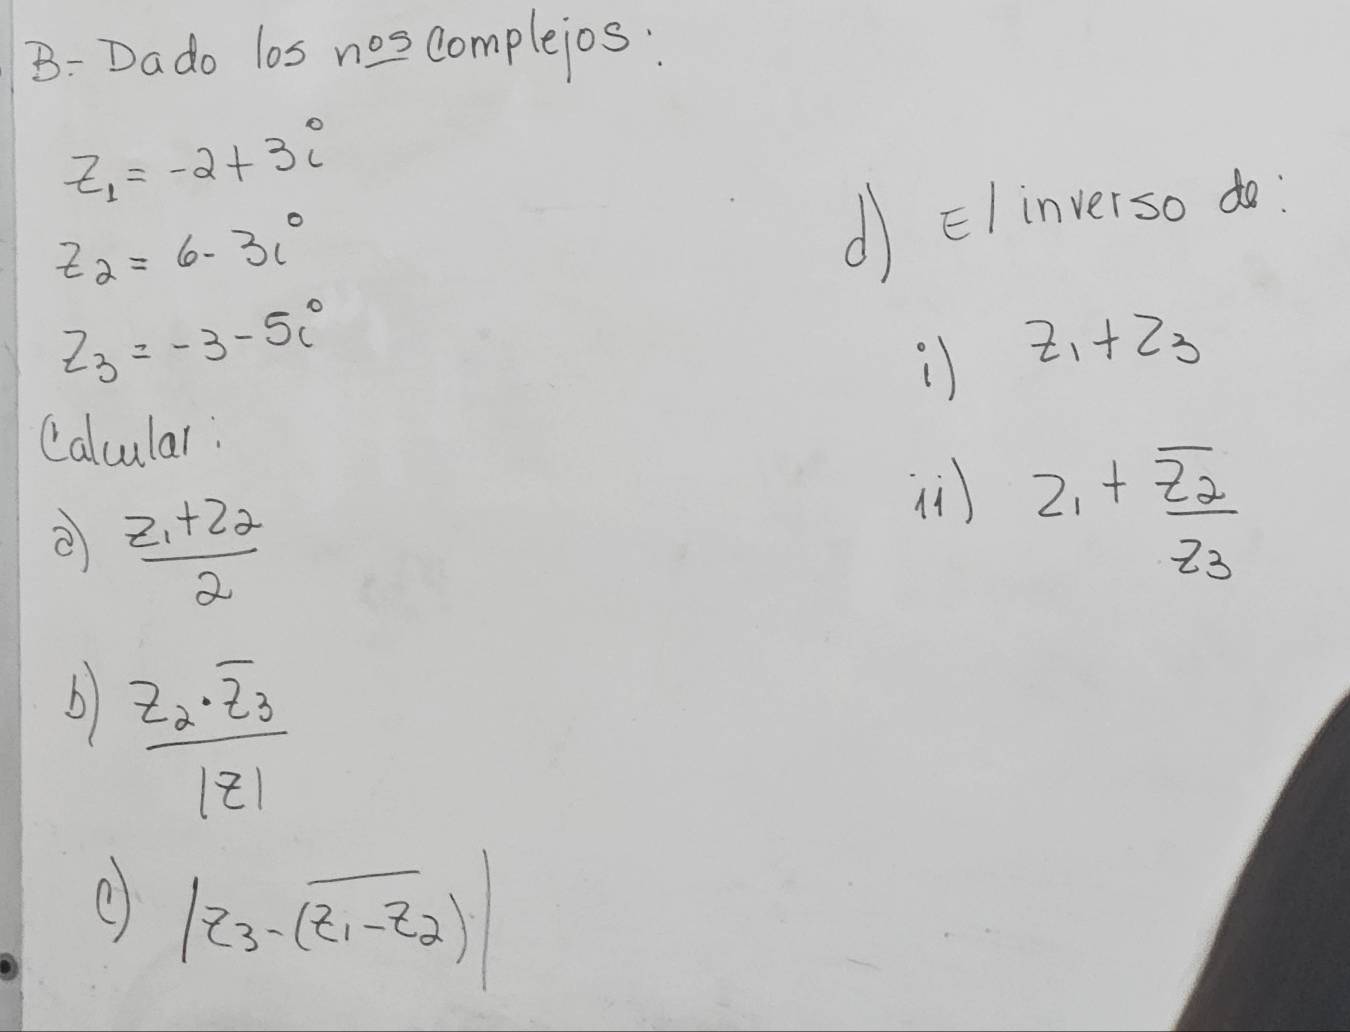 B.- Dado los nos complejos:
z₁ = -2+3i
z₂ = 6-3i
z₃ = -3-5i
Calcular:
a) (z₁+z₂)/2
b) (z₂·z̅₃)/|z|
c) |z₃-(\overline{z₁-z₂})|
d) El inverso de:
i) z₁+z₃
ii) z₁ + z̅₂/z₃